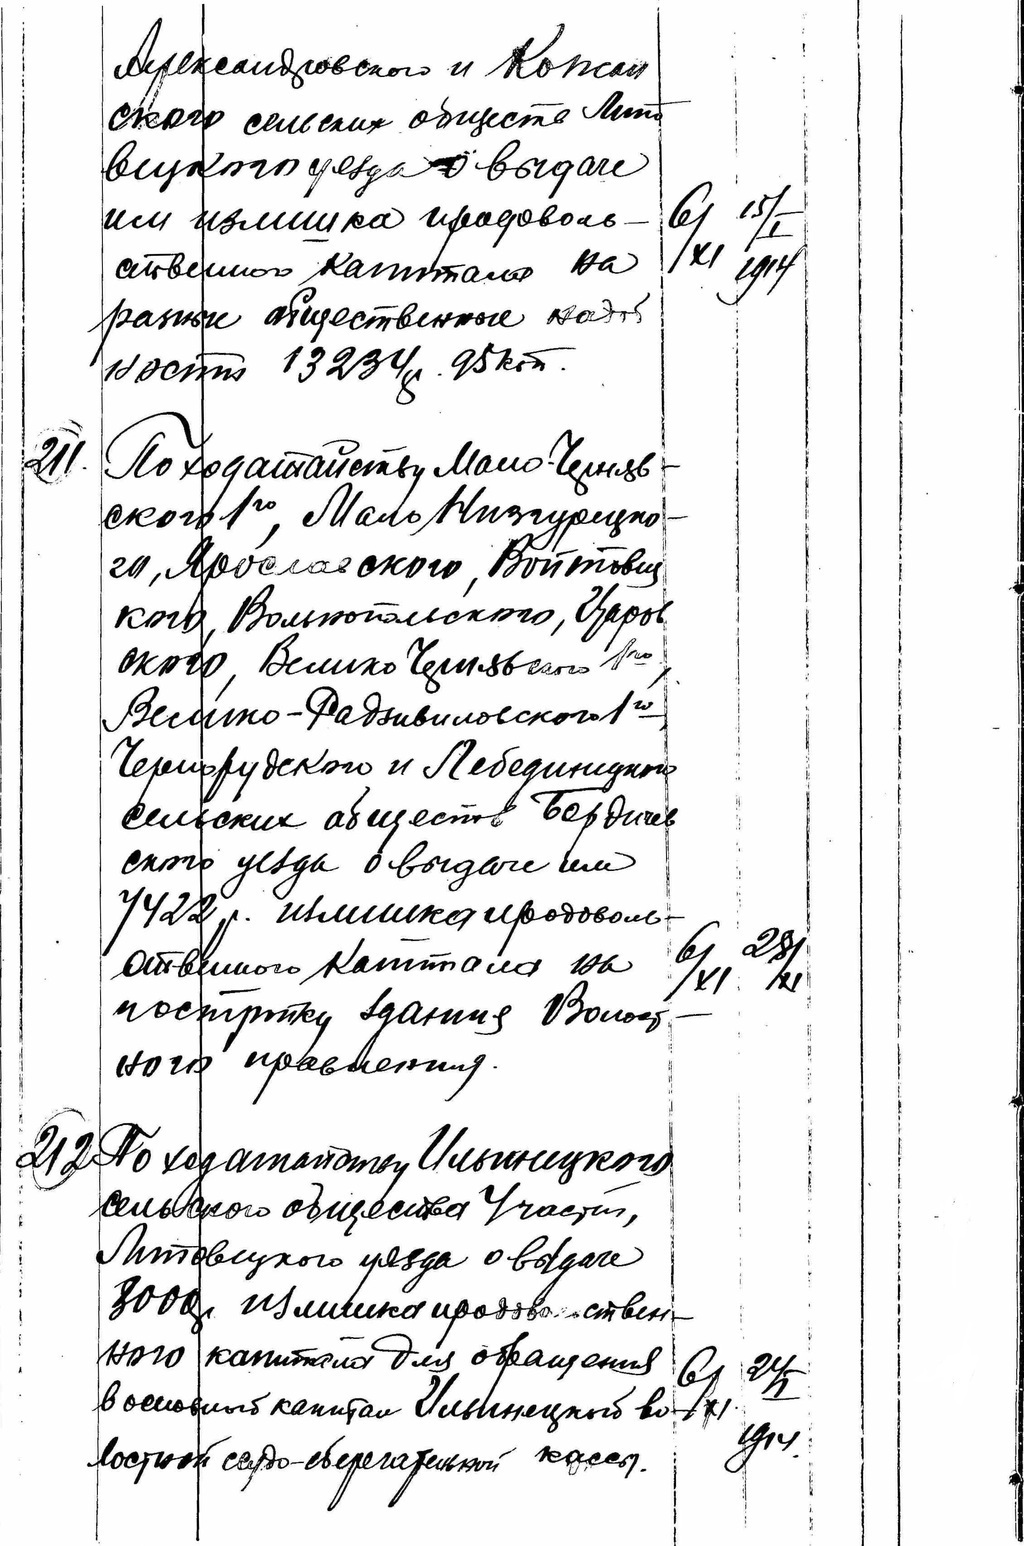 Александровского и Кожан
ского сельских обществ Липо
вецкого уезда о выдаче
им излишка продоволь-
ственного капитала на 6/XI 15/I 1914
разные общественные надоб
ности 13234 р. 95 коп.
211. По ходатайству Мало-Черняв-
ского 1го, Мало Низгурецко-
го, Ярославского, Войтовец
кого, Вольнопольского, Царов
ского, Велико Чернявского 1го,
Велико-Радзивиловского 1го
Чернорудского и Лебединецкого
сельских обществ Бердичев
ского уезда о выдаче им
7422 р. излишка продоволь-
ственного капитала на 6/XI 28/XI
постройку здания Волост-
ного правления.
212 По ходатайству Ильинецкого
сельского общества Участка,
Липовецкого уезда о выдаче
3000 р. излишка продовольствен-
ного капитала для обращения 6/XI 24/I 1914.
в основной капитал Ильинецкой во-
лостной ссудо-сберегательной кассы.